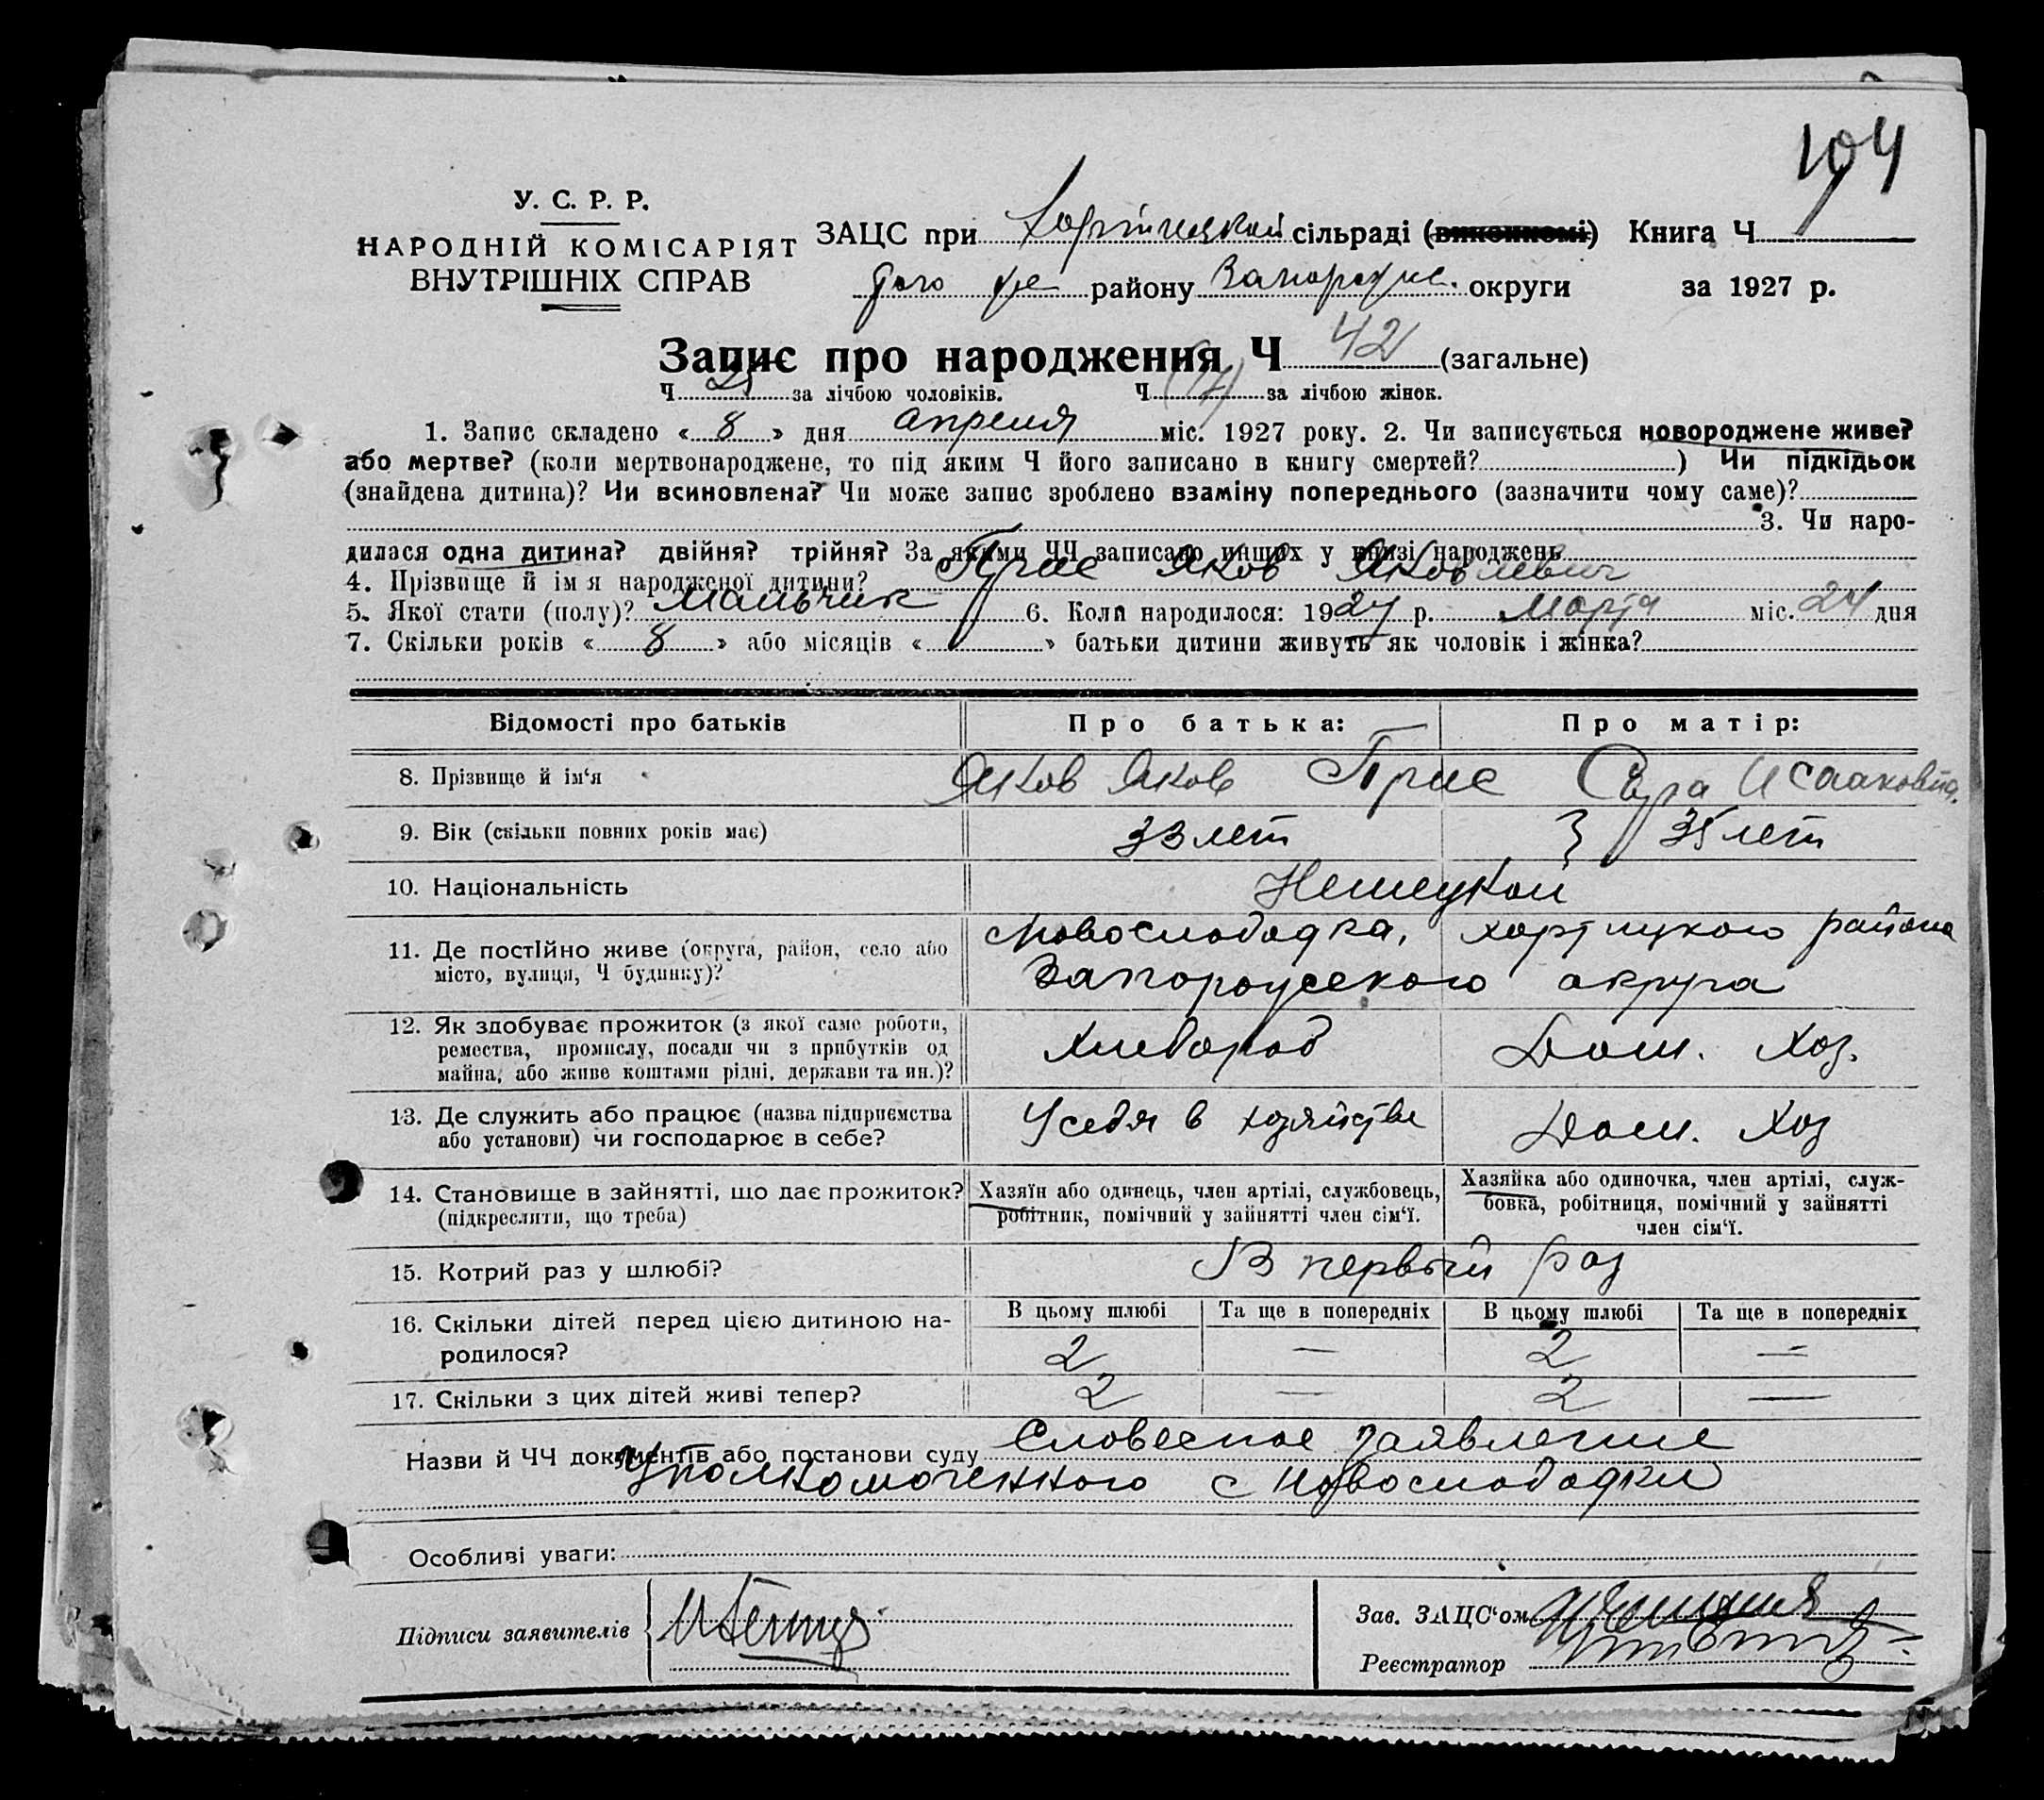 104
У. С. Р. Р.
НАРОДНІЙ КОМІСАРІЯТ
ВНУТРІШНІХ СПРАВ
ЗАЦС при Хортицкой сільраді (виконкомі) Книга Ч
того же району Запорожс. округи за 1927 р.
Запис про народження Ч 42 (загальне)
Ч 25 за лічбою чоловіків. Ч (17) за лічбою жінок.
1. Запис складено « 8 » дня апреля міс. 1927 року. 2. Чи записується новороджене живе?
або мертве? (коли мертвонароджене, то під яким Ч його записано в книгу смертей? ) Чи підкідьок
(знайдена дитина)? Чи всиновлена? Чи може запис зроблено взаміну попереднього (зазначити чому саме)?
3. Чи наро-
дилася одна дитина? двійня? трійня? За якими ЧЧ записано инших у книзі народжень
4. Прізвище й ім'я народженої дитини?Прис Яков Яковлевич
5. Якої стати (полу)? Мальчик 6. Коли народилося: 1927 р. Марта міс. 24 дня
7. Скільки років « 8 » або місяців « » батьки дитини живуть як чоловік і жінка?
Відомості про батьків Про батька: Про матір:
8. Прізвище й ім'я Яков Яковл Прис Сара Исааковна.
9. Вік (скільки повних років має) 33 лет 35 лет
10. Національність Немецкой
11. Де постійно живе (округа, район, село або
місто, вулиця, Ч будинку)?
Новослободка, Хортицкого района
Запорожского округа
12. Як здобуває прожиток (з якої саме роботи,
ремества, промислу, посади чи з прибутків од
майна, або живе коштами рідні, держави та ин.)?
Хлебороб Дом. Хоз.
13. Де служить або працює (назва підприємства
або установи) чи господарює в себе?
У себя в хозяйстве Дом. Хоз
14. Становище в зайнятті, що дає прожиток?
(підкреслити, що треба)
Хазяїн або одинець, член артілі, службовець,
робітник, помічний у зайнятті член сім'ї.
Хазяйка або одиночка, член артілі, служ-
бовка, робітниця, помічний у зайнятті
член сім'ї.
15. Котрий раз у шлюбі? В первый раз
16. Скільки дітей перед цією дитиною на-
родилося?
В цьому шлюбі Та ще в попередніх В цьому шлюбі Та ще в попередніх
2 — 2 —
17. Скільки з цих дітей живі тепер? 2 — 2 —
Назви й ЧЧ документів або постанови суду Словесное заявление
Уполномоченного с Новослободки
Особливі уваги:
Підписи заявителів
Зав. ЗАЦС'ом
Реєстратор